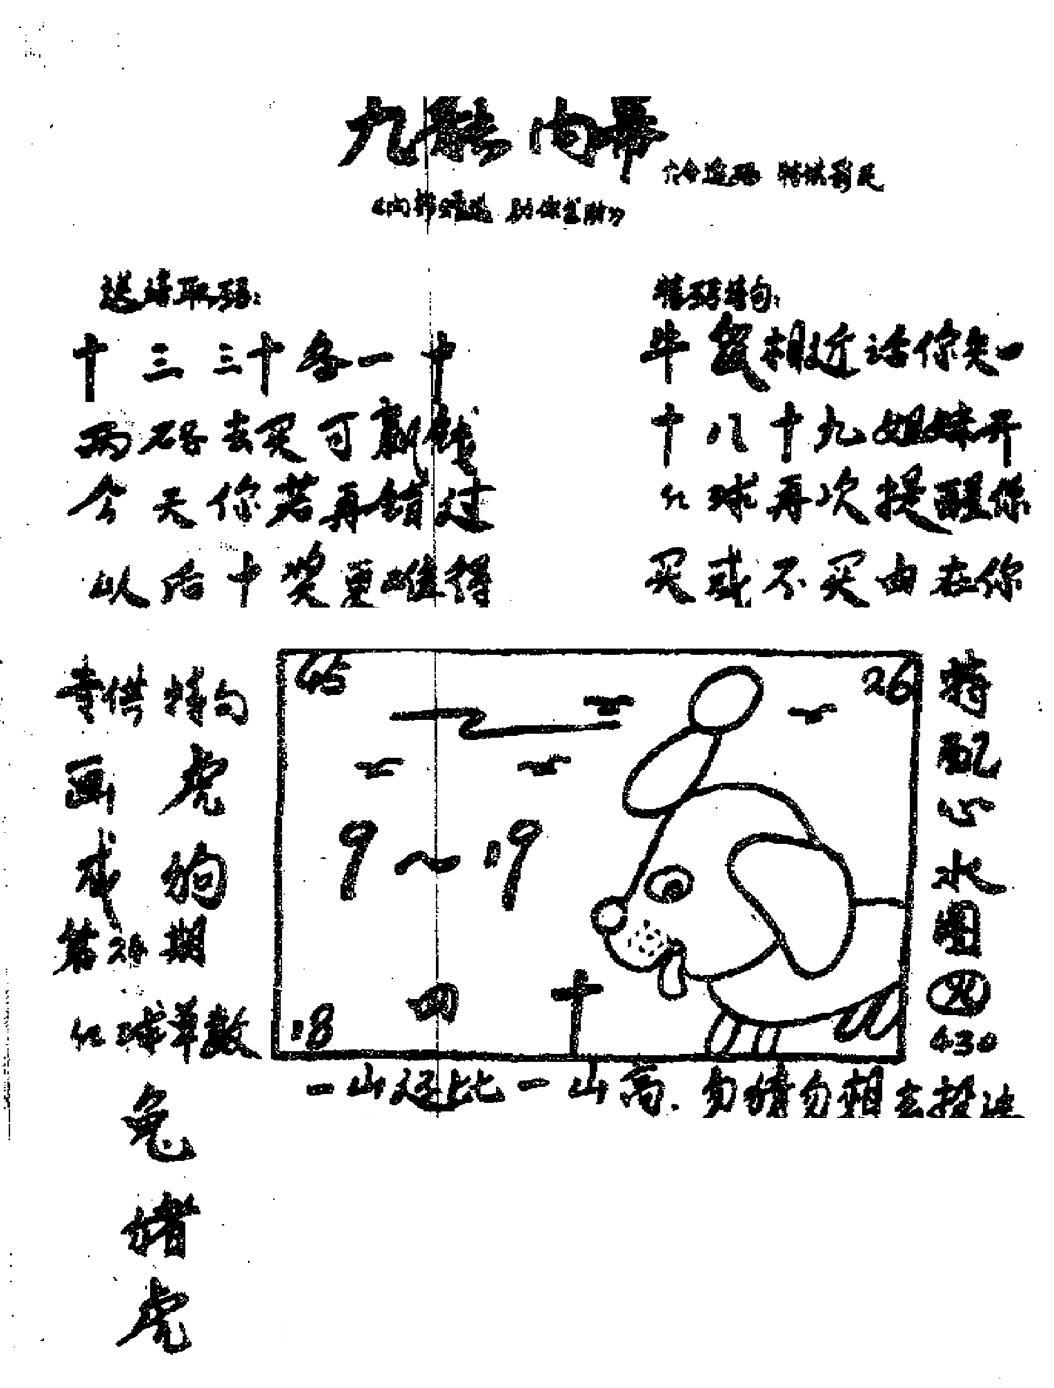 九龍内幕
六合透码 特供彩民
送诗取码：
十三三十各一中
两码去买可赢钱
今天你若再错过
以后中奖更难得
特码诗句：
牛鼠相近话你知
十八十九姐妹开
红球再次提醒你
买或不买由在你
寺供特句
画虎
成狗
第24期
红球单数
兔
猪
虎
45
26
9～19
四十
18
特配心水圖
430
一山还比一山高.勿猜勿相去投注